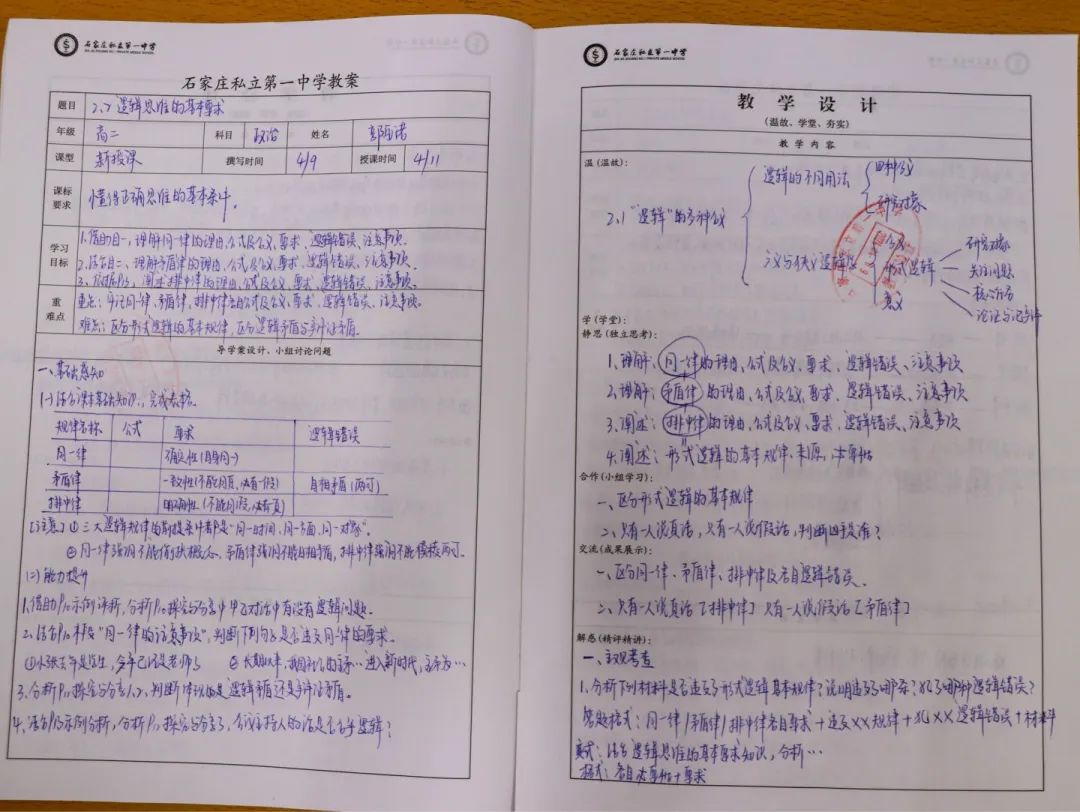 石家庄私立第一中学
石家庄私立第一中学教案
题目 2.2 逻辑思维的基本要求
年级 高二 科目 政治 姓名
课型 新授课 撰写时间 4/9 授课时间 4/11
课标要求 懂得正确思维的基本条件。
学习目标 1.借助目一,理解同一律的理由、公式及含义、要求、逻辑错误、注意事项。
2.结合目二、理解矛盾律的理由、公式及含义、要求、逻辑错误、注意事项。
3.依据P13,阐述排中律的理由、公式及含义、要求、逻辑错误、注意事项。
重难点 重点:牢记同一律、矛盾律、排中律各自公式及含义、要求、逻辑错误、注意事项。
难点:区分形式逻辑的基本规律,区分逻辑矛盾与辩证矛盾。
导学案设计、小组讨论问题
一、基础感知
(一)结合课本基础知识,完成表格。
规律名称 公式 要求 逻辑错误
同一律 确定性(自身同一)
矛盾律 一致性(不能同真,必有一假) 自相矛盾(两可)
排中律 明确性(不能同假,必有一真)
[注意]①三大逻辑规律的前提条件都是“同一时间、同一方面、同一对象”。
②同一律强调不能偷换概念、矛盾律强调不能自相矛盾,排中律强调不能模棱两可。
(二)能力提升
1.借助P10示例评析,分析P10探究与分享中甲乙对话中有没有逻辑问题。
2.结合P11末段“同一律的注意事项”,判断下列句子是否违反同一律的要求。
①小张去年是学生,今年已经是老师了 ②长期以来,我国社会的主要…进入新时代,主要为…
3.分析P12探究与分享1、2,判断体现的是逻辑矛盾还是辩证矛盾。
4.结合P13示例分析,分析P13探究与分享3,看我主持人的话是否合乎逻辑?
石家庄私立第一中学
教学设计
(温故、学堂、夯实)
教学内容
温(温故):
2.1“逻辑”的多种含义
逻辑的不同用法
四种含义
研究对象
含义
形式逻辑
意义
研究对象
关注问题
核心内容
学(学堂):
静思(独立思考):
1.理解:同一律的理由、公式及含义、要求、逻辑错误、注意事项
2.理解:矛盾律的理由、公式及含义、要求、逻辑错误、注意事项
3.阐述:排中律的理由、公式及含义、要求、逻辑错误、注意事项
4.阐述:形式逻辑的基本规律、来源、
合作(小组学习):
一、区分形式逻辑的基本规律
二、只有一人说真话,只有一人说假话,判断凶手是谁?
交流(成果展示):
一、区分同一律、矛盾律、排中律及各自逻辑错误。
二、只有一人说真话[排中律] 只有一人说假话[矛盾律]
解惑(精评精讲):
一、主观考查
1.分析下列材料是否违反了形式逻辑基本规律?说明违反了哪条?犯了哪种逻辑错误?
答题格式:同一律/矛盾律/排中律各自要求+违反XX规律+犯XX逻辑错误+材料
变式:结合逻辑思维的基本要求知识,分析…
格式:各自+要求